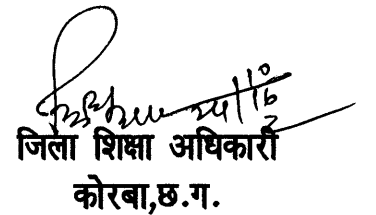 जिला शिक्षा अधिकारी
कोरबा,छ.ग.